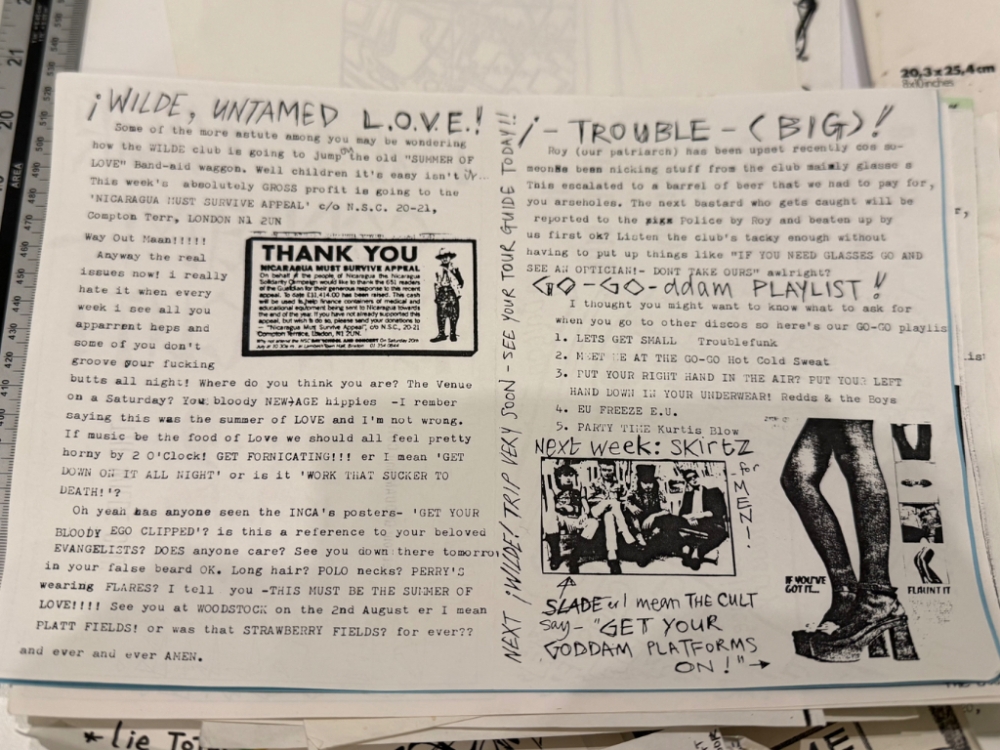 ¡WILDE, UNTAMED L.O.V.E.!
Some of the more astute among you may be wondering
how the WILDE club is going to jump on the old "SUMMER OF
LOVE" Band-aid waggon. Well children it's easy isn't it...
This week's absolutely GROSS profit is going to the
'NICARAGUA MUST SURVIVE APPEAL' c/o N.S.C. 20-21,
Compton Terr, LONDON N1 2UN
Way Out Maan!!!!!
Anyway the real
issues now! i really
hate it when every
week i see all you
apparrent heps and
some of you don't
groove your fucking
butts all night! Where do you think you are? The Venue
on a Saturday? You bloody NEW AGE hippies -I rember
saying this was the summer of LOVE and I'm not wrong.
If music be the food of Love we should all feel pretty
horny by 2 O'Clock! GET FORNICATING!!! er I mean 'GET
DOWN ON IT ALL NIGHT' or is it 'WORK THAT SUCKER TO
DEATH!'?
Oh yeah has anyone seen the INCA's posters- 'GET YOUR
BLOODY EGO CLIPPED'? is this a reference to your beloved
EVANGELISTS? DOES anyone care? See you down there tomorro
in your false beard OK. Long hair? POLO necks? PERRY'S
wearing FLARES? I tell you -THIS MUST BE THE SUMMER OF
LOVE!!!! See you at WOODSTOCK on the 2nd August er I mean
PLATT FIELDS! or was that STRAWBERRY FIELDS? for ever??
and ever and ever AMEN.
THANK YOU
NICARAGUA MUST SURVIVE APPEAL
On behalf of the people of Nicaragua the Nicaragua
Solidarity Campaign would like to thank the 651 readers
of the Guardian for their generous response to this recent
appeal. To date £31,414.00 has been raised. This cash
will be used to help finance containers of medical and
educational equipment being sent to Nicaragua towards
the end of the year. If you have not already supported this
appeal, but wish to do so, please send your donations to
— "Nicaragua Must Survive Appeal", c/o N.S.C., 20-21
Compton Terrace, London, N1 2UN.
NEXT ¡WILDE! TRIP VERY SOON - SEE YOUR TOUR GUIDE TODAY!!
¡- TROUBLE - (BIG)!
Roy (our patriarch) has been upset recently cos so-
meone been nicking stuff from the club mainly glasse s
This escalated to a barrel of beer that we had to pay for,
you arseholes. The next bastard who gets caught will be
reported to the pigs Police by Roy and beaten up by
us first ok? Listen the club's tacky enough without
having to put up things like "IF YOU NEED GLASSES GO AND
SEE AN OPTICIAN!- DONT TAKE OURS" awlright?
GO-GO-ddam PLAYLIST!!
I thought you might want to know what to ask for
when you go to other discos so here's our GO-GO playlis
1. LETS GET SMALL Troublefunk
2. MEET ME AT THE GO-GO Hot Cold Sweat
3. PUT YOUR RIGHT HAND IN THE AIR? PUT YOUR LEFT
HAND DOWN IN YOUR UNDERWEAR! Redds & the Boys
4. EU FREEZE E.U.
5. PARTY TIME Kurtis Blow
NEXT WEEK: SKIRTZ
for
MEN!
SLADE er I mean THE CULT
say- "GET YOUR
GODDAM PLATFORMS
ON!"→
IF YOU'VE
GOT IT...
FLAUNT IT
20,3 x 25,4 cm
8x10 inches
AREA
* lie To